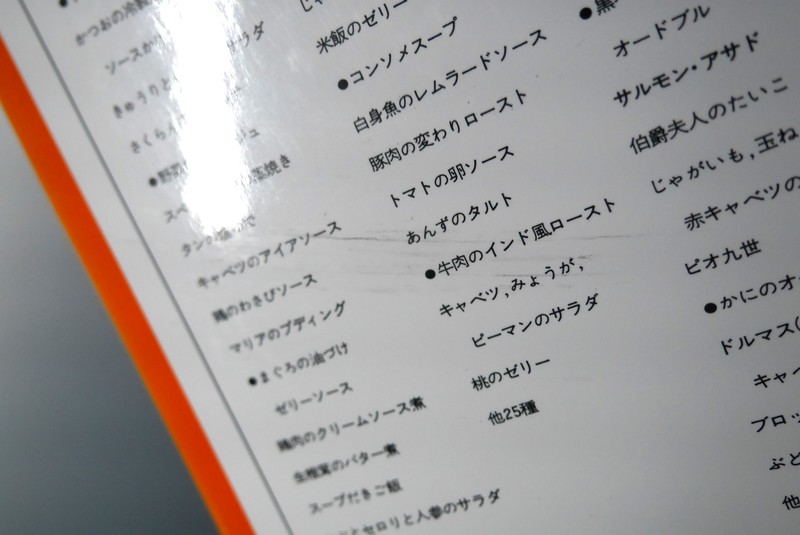 かつおの冷製
ソースか
サラダ
きゅうりと
さくらん
●野菜
玉焼き
スペ
タンの
キャベツのアイアソース
鶏のわさびソース
マリアのプディング
●まぐろの油づけ
ゼリーソース
鶏肉のクリームソース煮
生椎茸のバター煮
スープだきご飯
とセロリと人参のサラダ
米飯のゼリー
●コンソメスープ
白身魚のレムラードソース
豚肉の変わりロースト
トマトの卵ソース
あんずのタルト
●牛肉のインド風ロースト
キャベツ,みょうが,
ピーマンのサラダ
桃のゼリー
他25種
●黒
オードブル
サルモン・アサド
伯爵夫人のたいこ
じゃがいも,玉ね
赤キャベツの
ピオ九世
●かにのオ
ドルマス(
キャベ
ブロッ
ぶど
他